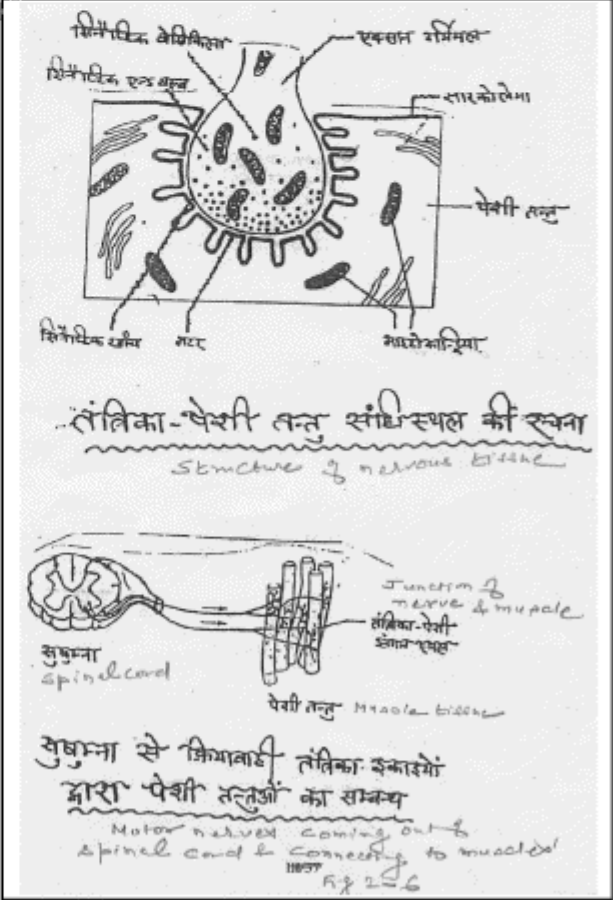 सिनैप्टिक वेसिकिल्स
एक्सान टर्मिनल
सिनैप्टिक एन्ड बल्ब
सारकोलेमा
पेशी तन्तु
सिनैप्टिक
माइटोकान्ड्रिया
तंत्रिका-पेशी तन्तु संधि स्थल की रचना
Structure of nervous tissue
Junction of
nerve & muscle
तंत्रिका-पेशी
स्थल
सुषुम्ना
Spinal cord
पेशी तन्तु Muscle tissue
सुषुम्ना से क्रियावाही तंत्रिका इकाइयों
द्वारा पेशी तन्तुओं का सम्बन्ध
Motor nerves coming out of
Spinal cord & connecting to muscles
Fig 2-6